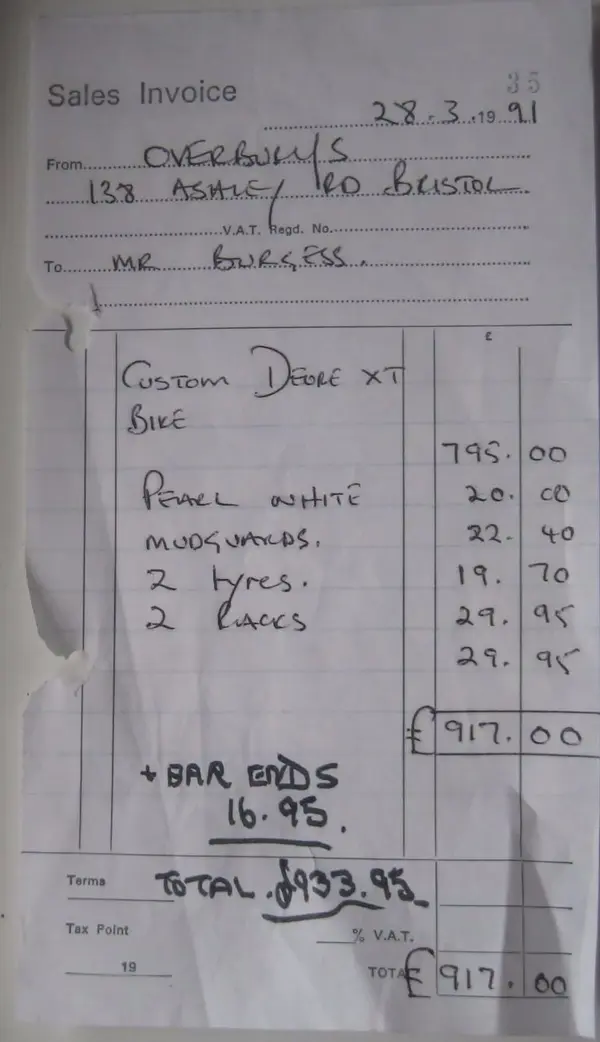 35
Sales Invoice
28.3.19 91
From OVERBURY'S
138 ASHLEY RD BRISTOL
V.A.T. Regd. No.
To MR BURGESS.
£
CUSTOM DEORE XT
BIKE
795.00
PEARL WHITE 20.00
MUDGUARDS. 22.40
2 tyres. 19.70
2 RACKS 29.95
29.95
£917.00
+ BAR ENDS
16.95.
Terms TOTAL. £933.95
Tax Point % V.A.T.
19 TOTAL £917.00